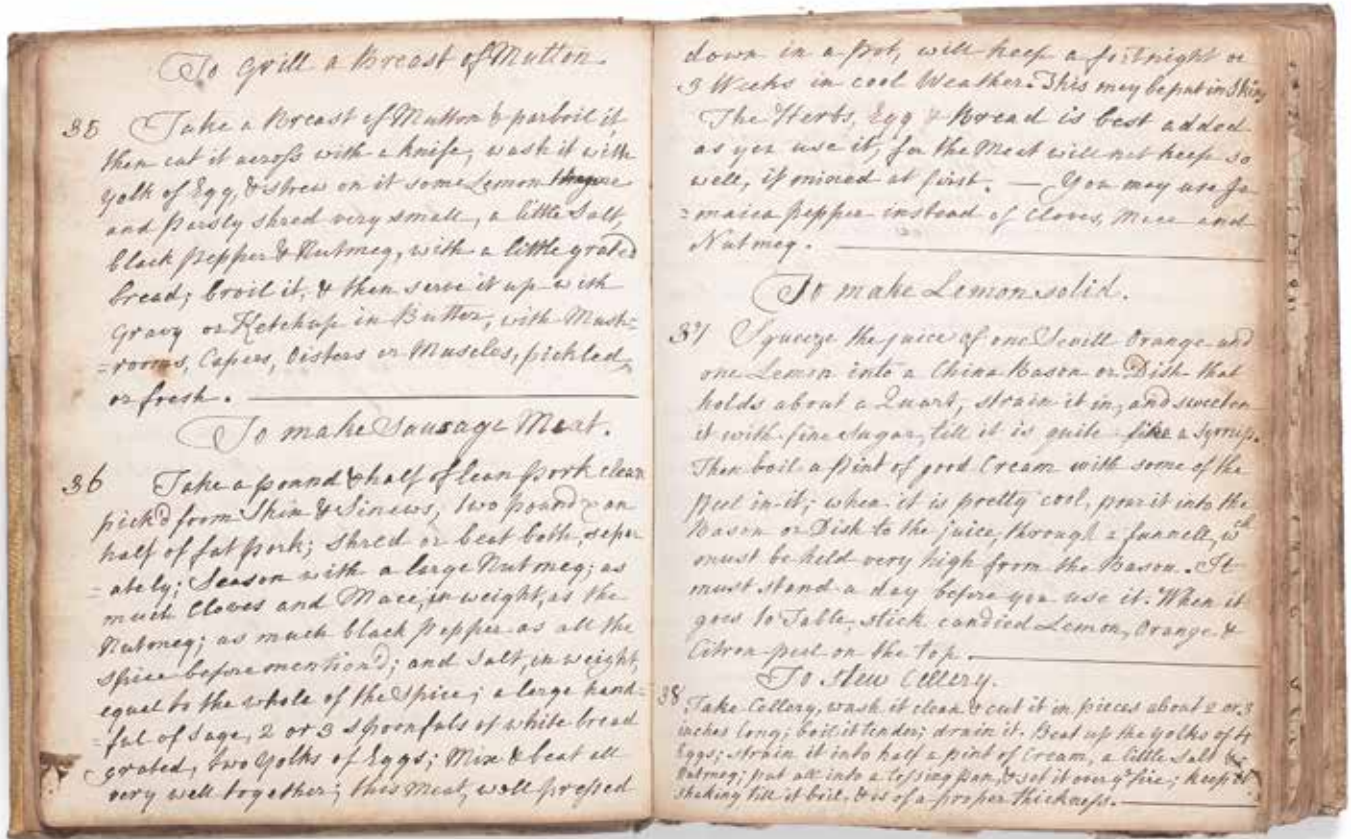 To Grill a Breast of Mutton.
35 Take a Breast of Mutton & parboil it,
then cut it across with a knife, wash it with
yolk of Egg, & strew on it some Lemon thyme
and Parsly shred very small, a little Salt,
black pepper & Nutmeg, with a little grated
bread; broil it, & then serve it up with
Gravy or Ketchup in Butter, with Mush=
=rooms, Capers, Oisters or Muscles, pickled,
or fresh.
To make Sausage Meat.
36 Take a pound & half of lean pork clean
pick'd from Skin & Sinews, two pound & an
half of fat pork; shred or beat both, seper
=ately; Season with a large Nutmeg; as
much Cloves and Mace, in weight, as the
Nutmeg; as much black pepper as all the
spice before mention'd; and Salt, in weight,
equal to the whole of the Spice; a large hand=
=ful of Sage, 2 or 3 spoonfuls of white bread
grated, two yolks of Eggs; Mix & beat all
very well together; this Meat, well pressed
down in a pot, will keep a fortnight or
3 Weeks in cool Weather. This may be put in Skins
The Herbs, Egg & Bread is best added
as you use it, for the Meat will not keep so
well, if mixed at first. — You may use Ja
=maica pepper instead of Cloves, Mace and
Nutmeg.
To make Lemon solid.
37 Squeeze the juice of one Sevill Orange and
one Lemon into a China Bason or Dish that
holds about a Quart, strain it in, and sweeten
it with fine Sugar, till it is quite like a Syrrup.
Then boil a pint of good Cream with some of the
peel in it; when it is pretty cool, pour it into the
Bason or Dish to the juice, through a funnell, wch
must be held very high from the Bason. It
must stand a day before you use it. When it
goes to Table, stick candied Lemon, Orange &
Citron peel on the top.
To stew Cellery.
38 Take Cellery, wash it clean & cut it in pieces about 2 or 3
inches long; boil it tender; drain it. Beat up the yolks of 4
Eggs; strain it into half a pint of Cream, a little Salt &
Nutmeg; put all into a Tossing pan, & set it over ye fire; keep it
shaking till it boil, & is of a proper thickness.